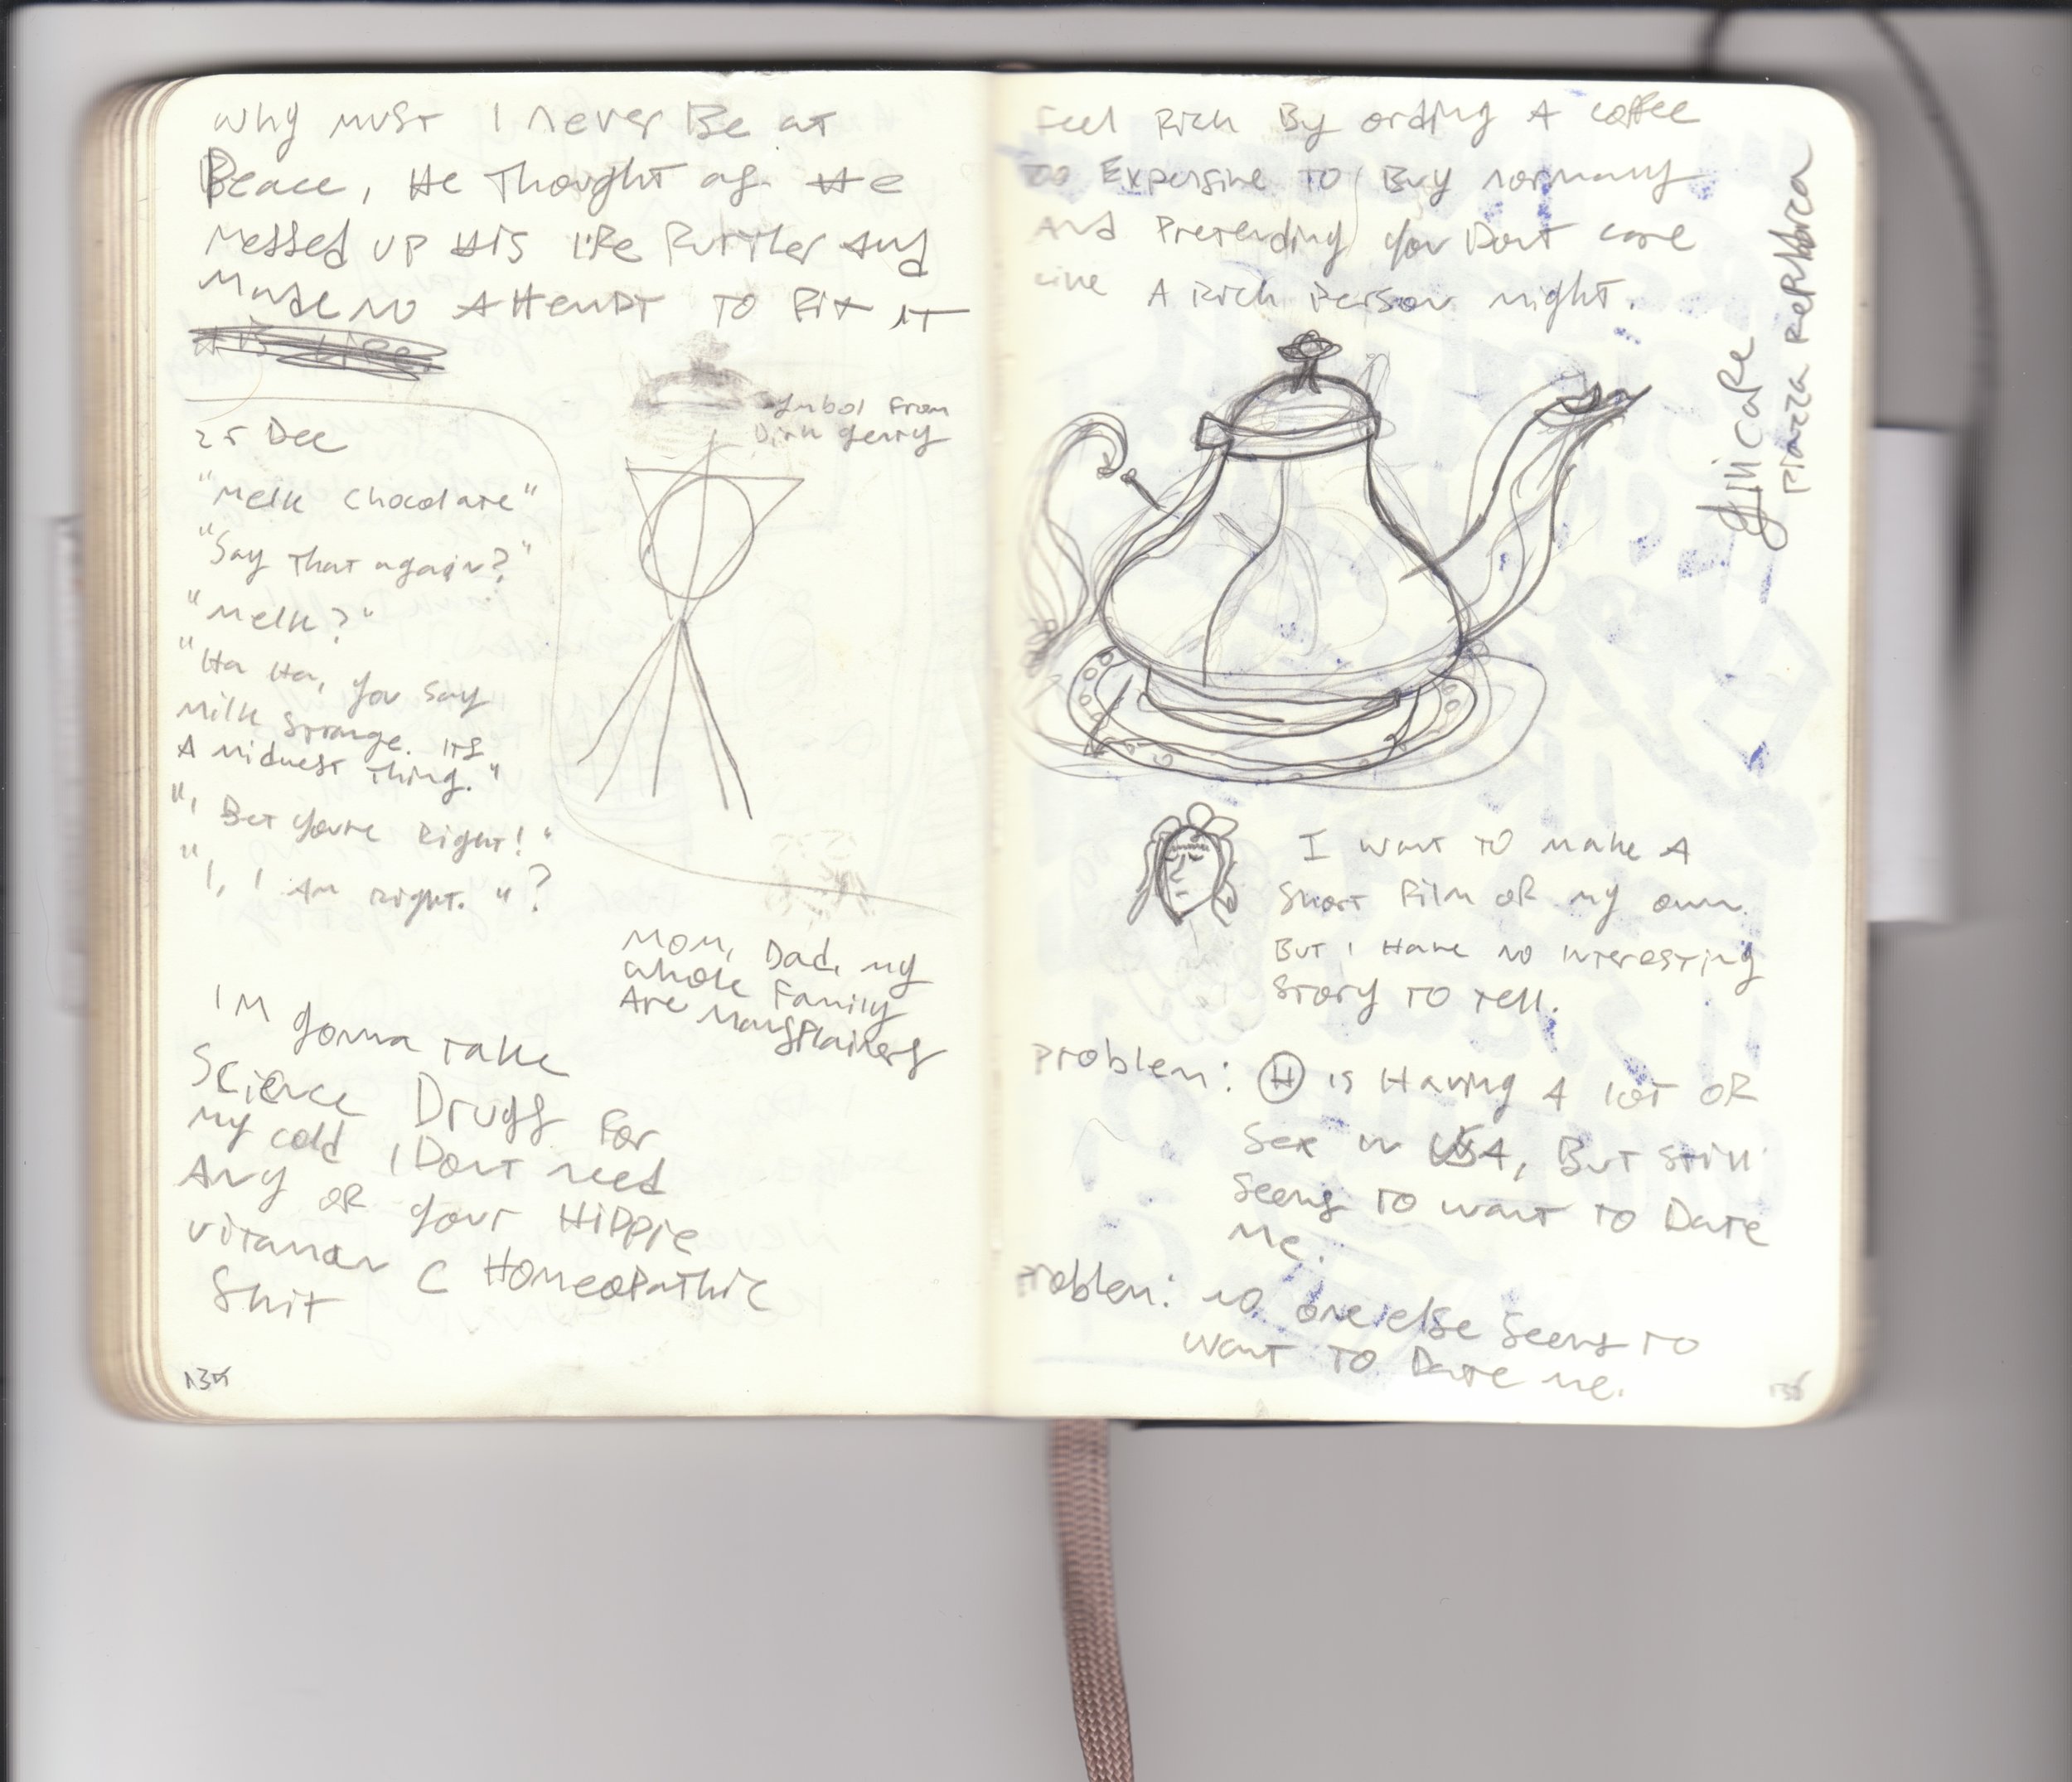 why must I never Be at
Peace, He Thought as He
messed up His life further And
Made no Attempt to fix it
His life
symbol from
Dirk gently
25 Dec
"Melk Chocolate"
"Say That again?"
"Melk?"
"Ha Ha, you say
milk strange. its
A midwest Thing."
"I Bet you're Right!"
"I, I Am right."?
Mom, Dad, my
whole Family
Are Mansplainers
I'm gonna take
Science Drugs for
my cold I Dont need
Any of your Hippie
vitaman C Homeopathic
Shit
134
Feel Rich By ording A coffee
too Expensive to Buy normaly
And Pretending you Dont care
like A Rich Person might.
Piazza Repubbica
I want to make A
short film of my own.
But I Have no interesting
story to tell.
Problem: H is Having A lot of
sex in USA, But still
seems to want to Date
me.
Problem: no one else seems to
want to Date me.